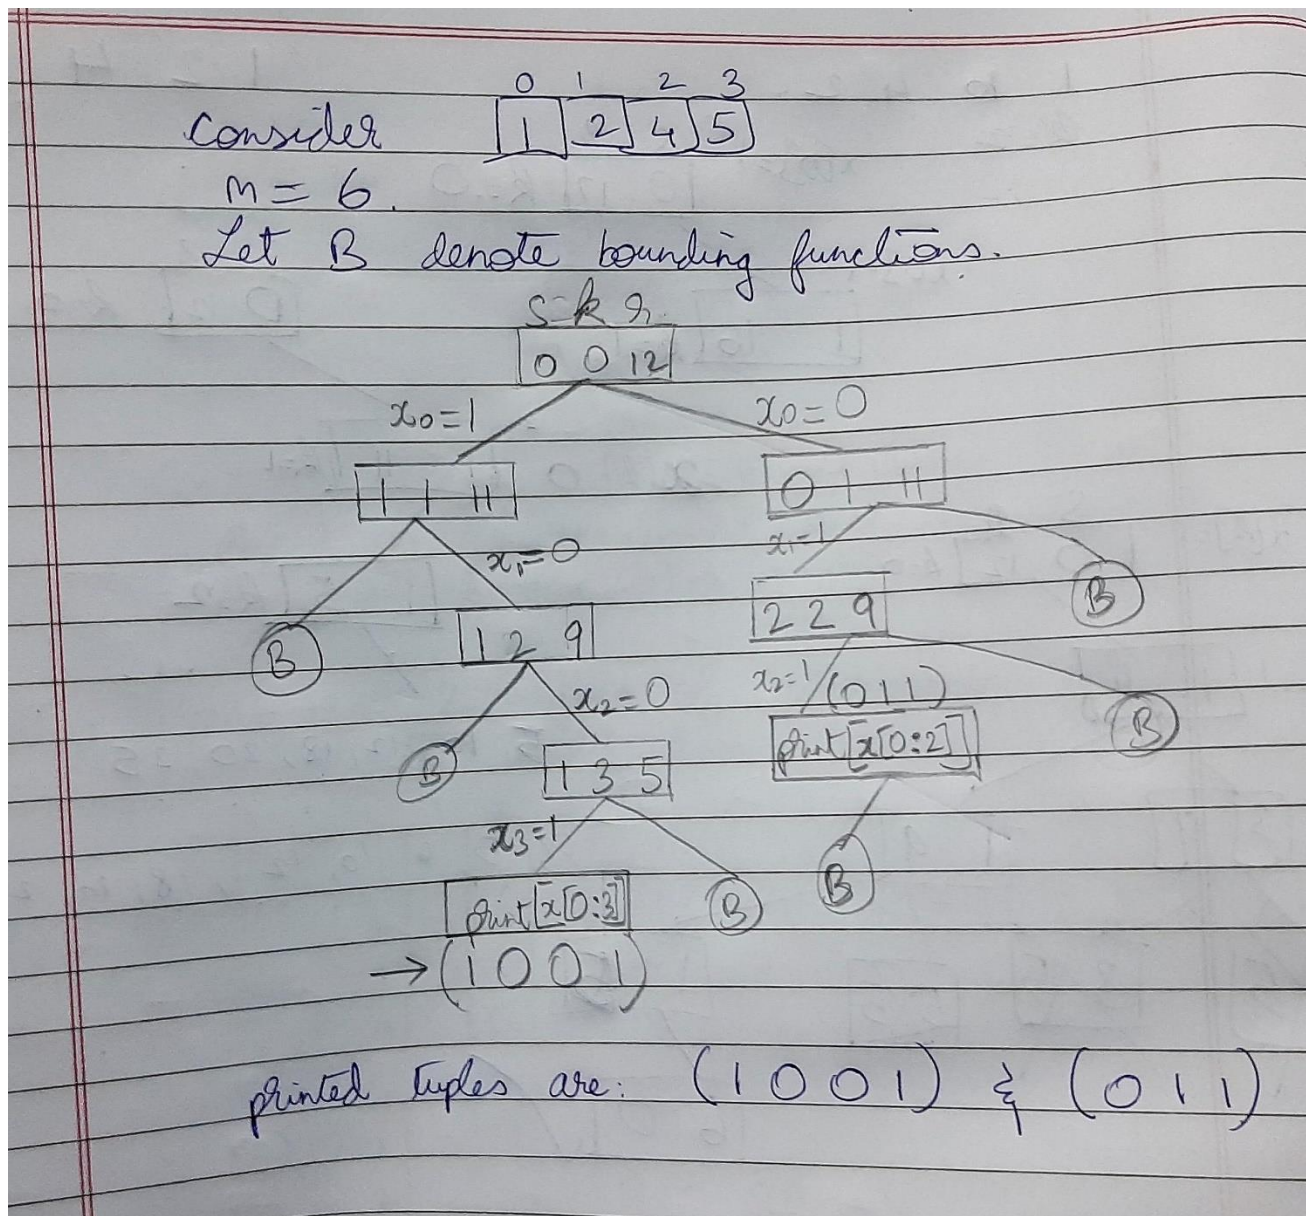 0 1 2 3
Consider 1 2 4 5
m = 6.
Let B denote bounding functions.
s k r
0 0 12
x0=1 x0=0
1 1 11 0 1 11
x1=0 x1=1
B 1 2 9 2 2 9 B
x2=0 x2=1 (011)
B 1 3 5 print[x[0:2]] B
x3=1
print[x[0:3]] B B
→(1001)
printed tuples are: (1001) & (011)